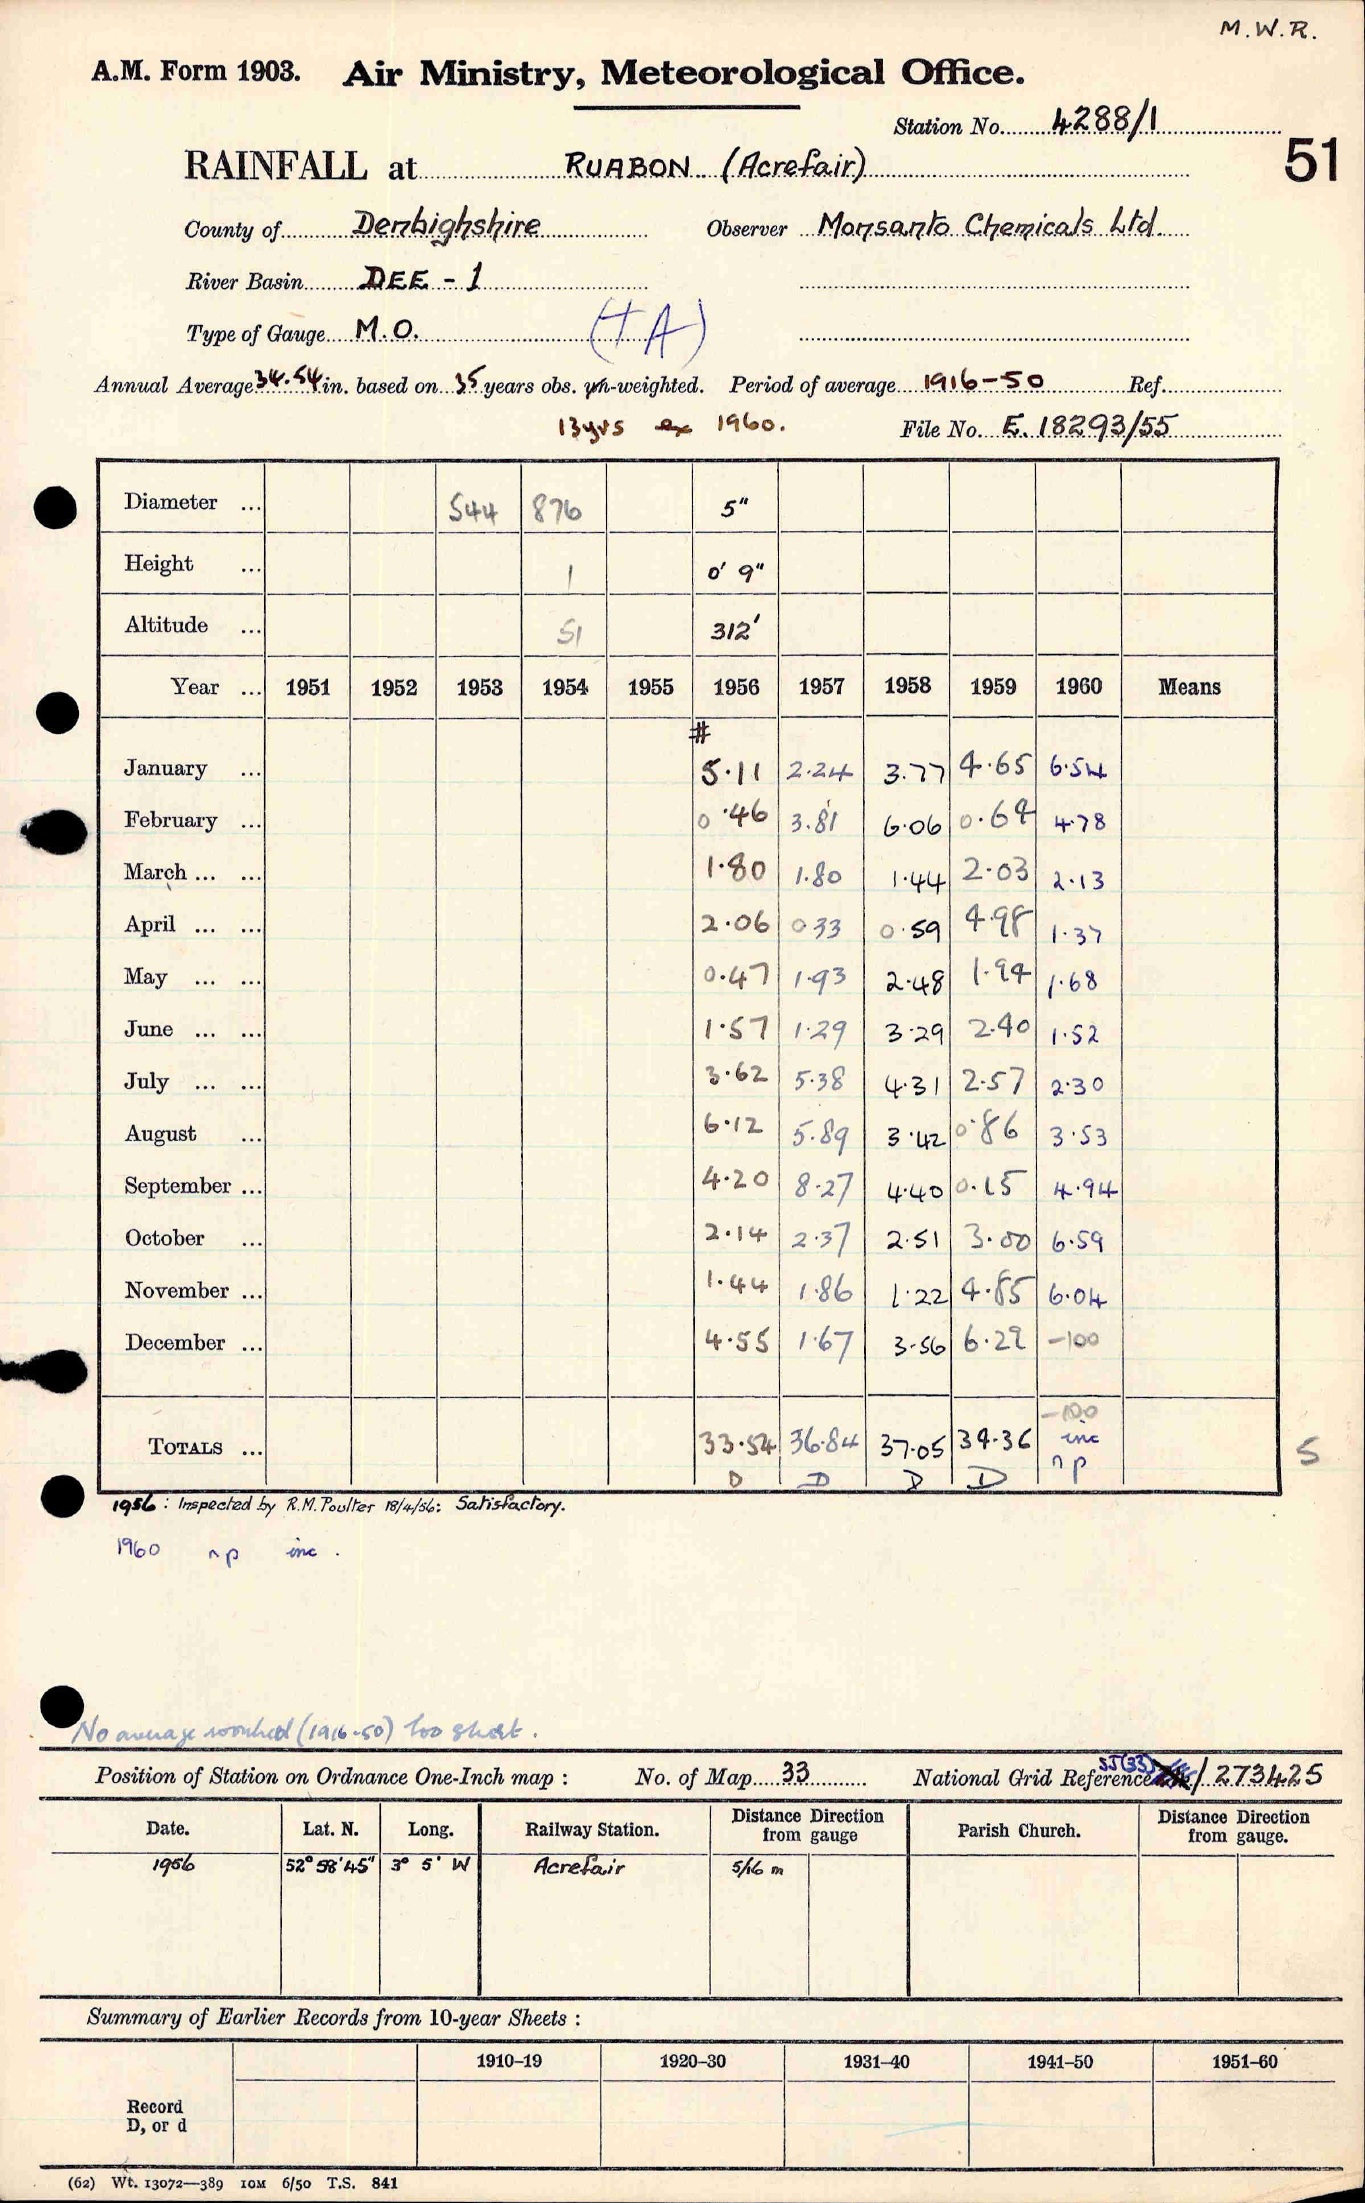 M.W.R.
A.M. Form 1903. Air Ministry, Meteorological Office.
Station No. 4288/1
51
RAINFALL at RUABON (Acrefair)
County of Denbighshire Observer Monsanto Chemicals Ltd.
River Basin DEE - 1
Type of Gauge M.O. (TA)
Annual Average 34.54 in. based on 35 years obs. un-weighted. Period of average 1916-50 Ref.
13 yrs ex 1960. File No. E. 18293/55
Diameter ... 544 876 5"
Height ... 1 0' 9"
Altitude ... 51 312'
Year ... 1951 1952 1953 1954 1955 1956 1957 1958 1959 1960 Means
#
January ... 5.11 2.24 3.77 4.65 6.54
February ... 0.46 3.81 6.06 0.64 4.78
March ... ... 1.80 1.80 1.44 2.03 2.13
April ... ... 2.06 0 33 0.59 4.98 1.37
May ... ... 0.47 1.93 2.48 1.94 1.68
June ... ... 1.57 1.29 3.29 2.40 1.52
July ... ... 3.62 5.38 4.31 2.57 2.30
August ... 6.12 5.89 3.42 0.86 3.53
September ... 4.20 8.27 4.40 0.15 4.94
October ... 2.14 2.37 2.51 3.00 6.59
November ... 1.44 1.86 1.22 4.85 6.04
December ... 4.55 1.67 3.56 6.29 -100
-100
TOTALS ... 33.54 36.84 37.05 34.36 inc
n p
D D D D
5
1956 : Inspected by R.M. Poulter 18/4/56: Satisfactory.
1960 n p inc.
No average worked (1916-50) too short.
Position of Station on Ordnance One-Inch map : No. of Map 33 National Grid Reference SJ(33) / 273425
Date. Lat. N. Long. Railway Station. Distance from gauge Direction Parish Church. Distance from gauge. Direction
1956 52° 58' 45" 3° 5' W Acrefair 5/16 m
Summary of Earlier Records from 10-year Sheets :
1910–19 1920–30 1931–40 1941–50 1951–60
Record
D, or d
(62) Wt. 13072—389 10M 6/50 T.S. 841